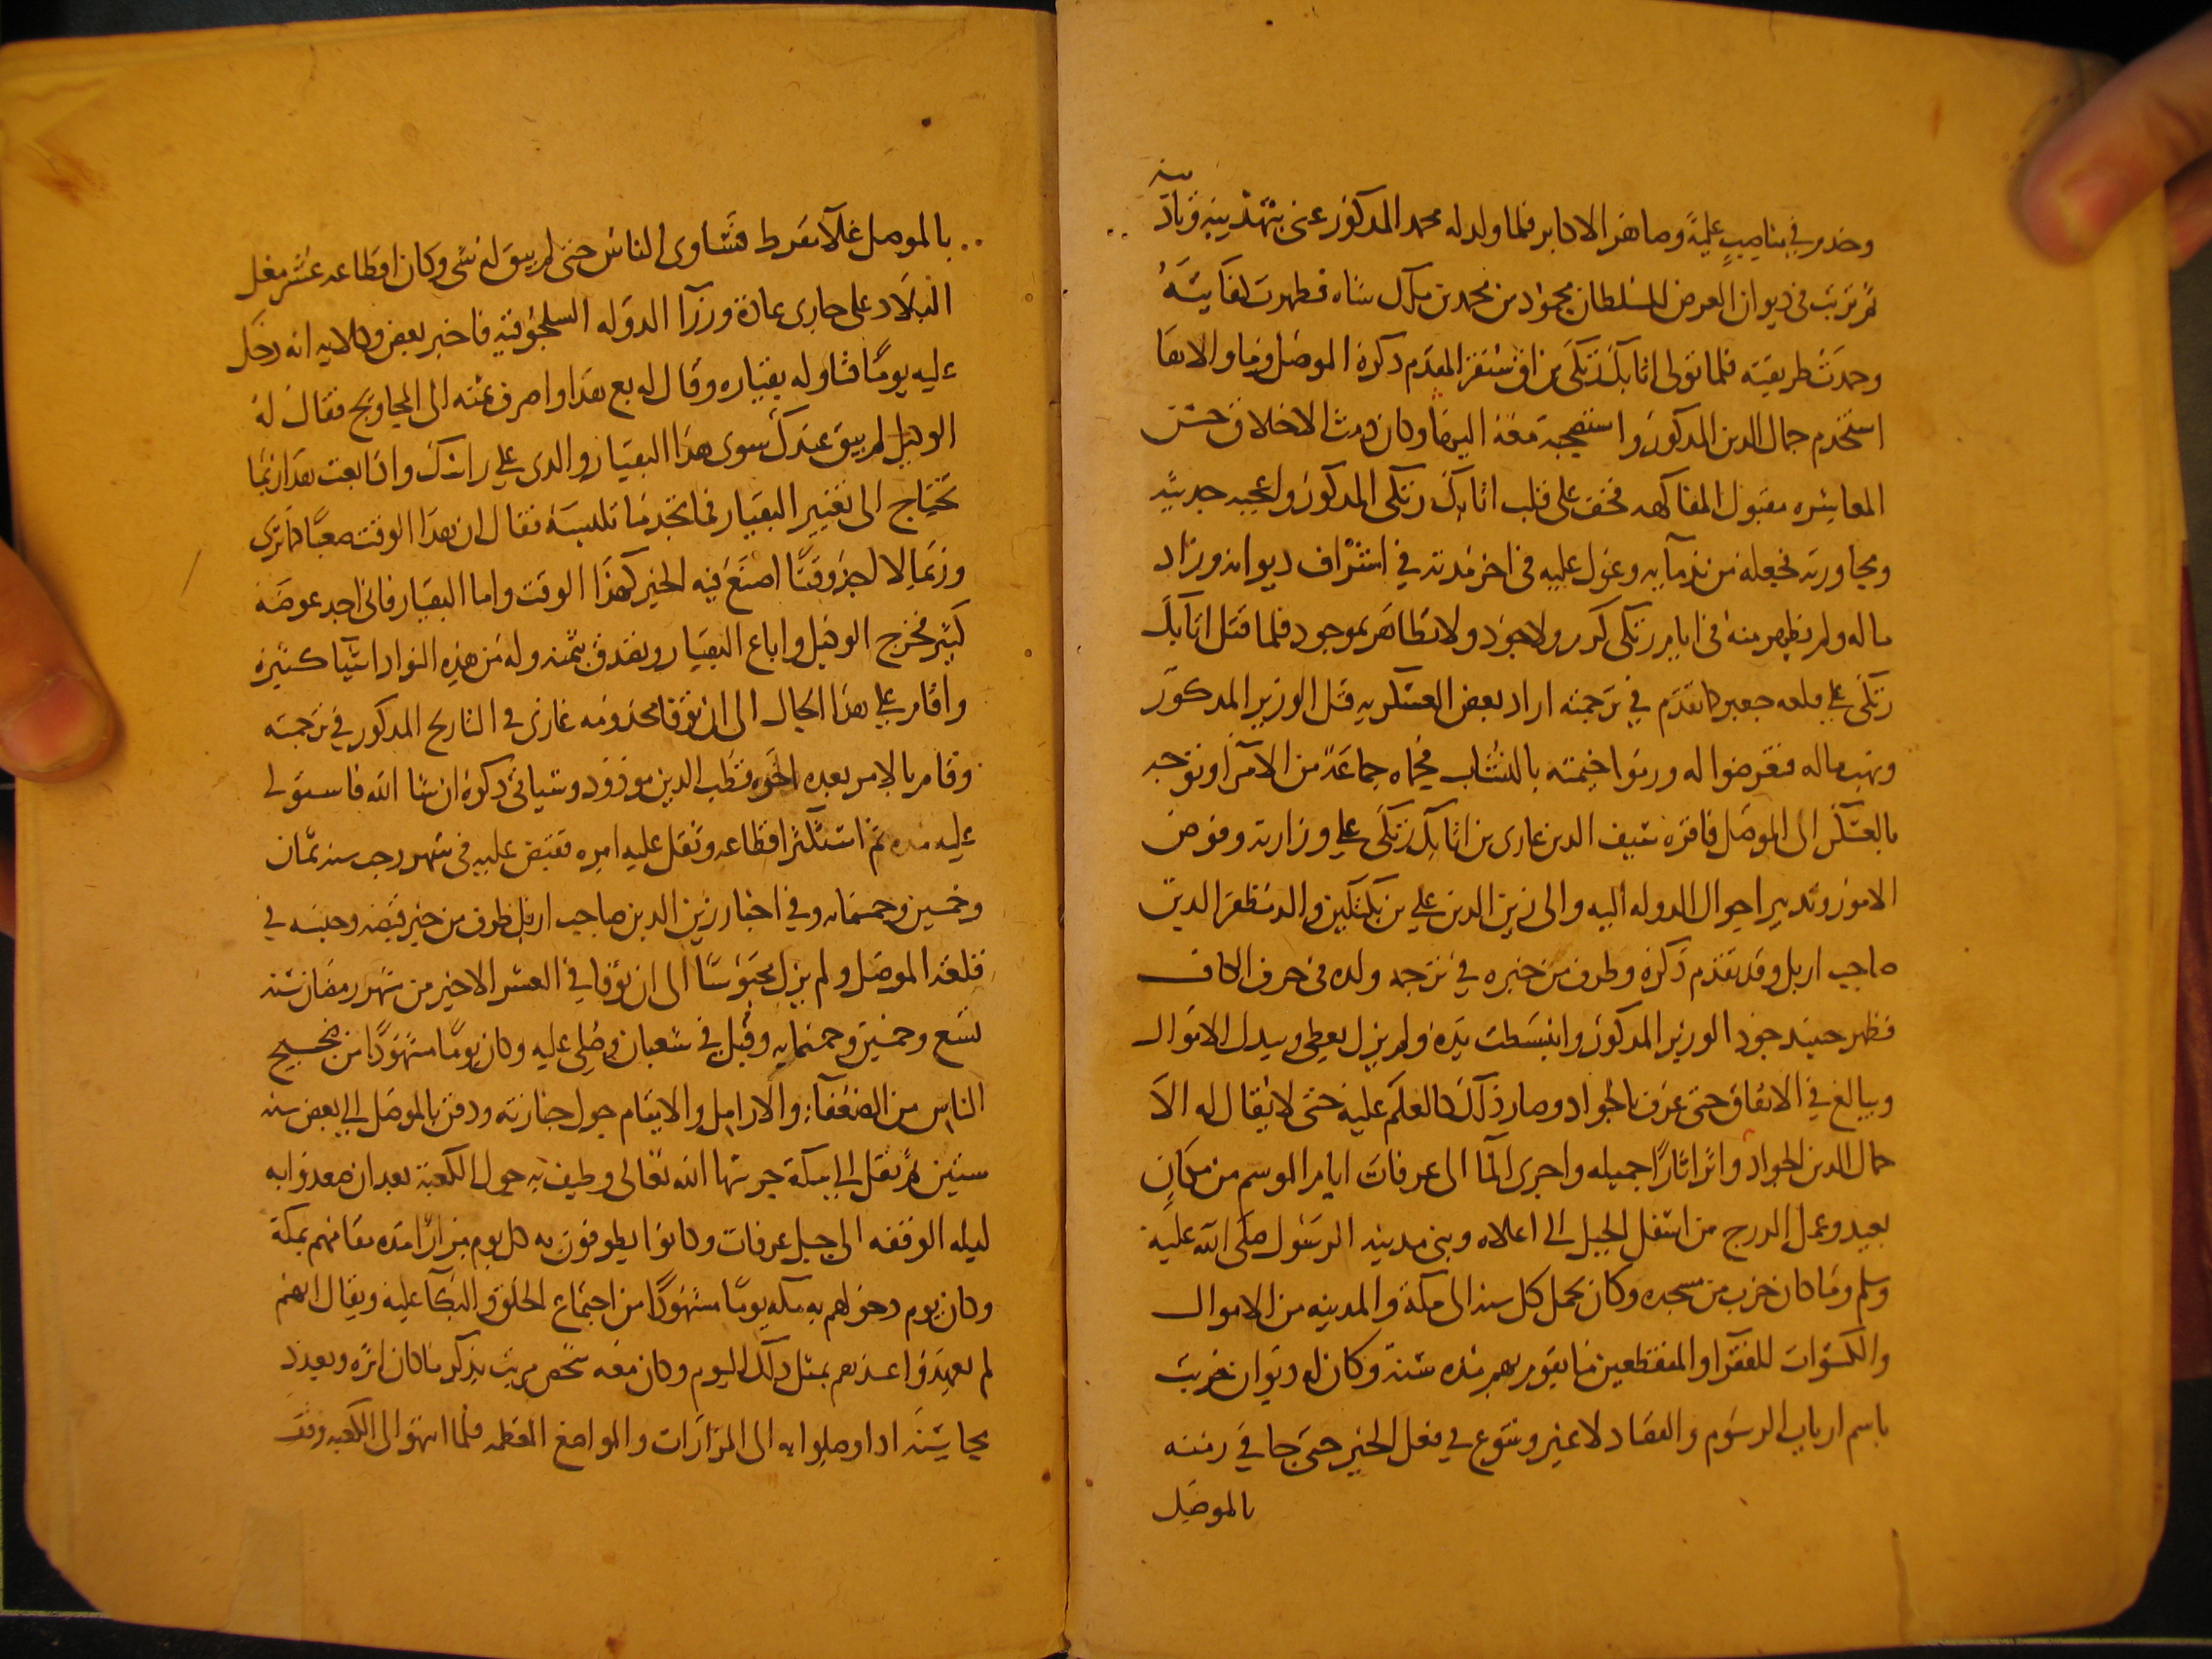 وخدم في مناصب علية وصاهر الاكابر فلما ولد له محمد المذكور عنى بتهذيبه وتاديبه
ثم ترتب في ديوان العرض للسلطان محمود بن محمد بن ملك شاه فظهرت كفايته
وحمدت طريقته فلما تولى اتابك زنكي بن اق سنقر المقدم ذكره الموصل وما والاها
استخدم جمال الدين المذكور واستصحبه معه اليها وكان دمث الاخلاق حسن
المعاشره مقبول المفاكهه فخف على قلب اتابك زنكي المذكور واعجبه حديثه
ومحاورته فجعله من ندمايه وعول عليه في اخر مدته في اشراف ديوانه وزاد
ماله ولم يظهر منه في ايام زنكي كرم ولا جود ولا تظاهر بموجود فلما قتل اتابك
زنكي على قلعه جعبر كما تقدم في ترجمته اراد بعض العسكريه قتل الوزير المذكور
ونهب ماله فتعرضوا له ورموا خيمته بالنشاب فحماه جماعة من الامرا وتوجه
بالعسكر الى الموصل فاقره سيف الدين غازي بن اتابك زنكي على وزارته وفوض
الامور وتدبير احوال الدوله اليه والى زين الدين علي بن بكتكين والد مظفر الدين
صاحب اربل وقد تقدم ذكره وطرف من خبره في ترجمه ولده في حرف الكاف
فظهر حينيذ جود الوزير المذكور وانبسطت يده ولم يزل يعطي ويبذل الاموال
ويبالغ في الانفاق حتى عرف بالجواد وصار ذلك كالعلم عليه حتى لا يقال له الا
جمال الدين الجواد واثر اثارا جميله واجرى الما الى عرفات ايام الموسم من مكان
بعيد وعمل الدرج من اسفل الجبل الى اعلاه وبنى مدينه الرسول صلى الله عليه
وسلم وما كان خرب من مسجده وكان يحمل كل سنه الى مكة والمدينه من الاموال
والكسوات للفقرا والمنقطعين ما يقوم بهم مده سنة وكان له ديوان مرتب
باسم ارباب الرسوم والقصاد لا غير وتنوع في فعل الخير حتى جا في زمنه
بالموصل
بالموصل غلا مفرط فتساوى الناس حتى لم يبق له شى وكان اقطاعه عشر مغل
البلاد على جارى عادة وزرا الدوله السلجوقيه فاخبر بعض وكلايه انه دخل
عليه يوما فناوله بقياره وقال له بع هذا واصرف ثمنه الى المحاويج فقال له
الوكيل لم يبق عندك سوى هذا البقيار والدى على راسك واذا بعت هذا ربما
تحتاج الى تغيير البقيار فما تجد ما تلبسه فقال ان هذا الوقت صعب كما ترى
وربما لا اجد وقتا اصنع فيه الخير كهذا الوقت واما البقيار فاني اجد عوضه
كثير فخرج الوكيل واباع البقيار وتصدق بثمنه وله من هذه النوادر اشيا كثيرة
واقام على هذا الحال الى ان توفى مخدومه غازي في التاريخ المذكور في ترجمته
وقام بالامر بعده اخوه قطب الدين مودود وسياتي ذكره ان شا الله فاستولى
عليه مده ثم استكثر اقطاعه وثقل عليه امره فقبض عليه في شهر رجب سنه ثمان
وخمسين وخمسمايه وفي اخبار زين الدين صاحب اربل طرف من خبر قبضه وحبسه في
قلعه الموصل ولم يزل محبوسا الى ان توفى في العشر الاخير من شهر رمضان سنه
تسع وخمسين وخمسمايه وقيل في شعبان وصلى عليه وكان يوما مشهودا من ضجيج
الناس من الضعفا والارامل والايتام حول جنازته ودفن بالموصل الى بعض سنه
ستين ثم نقل الى مكة حرسها الله تعالى وطيف به حول الكعبة بعد ان صعدوا به
ليله الوقفه الى جبل عرفات وكانوا يطوفون به كل يوم مرارا مده مقامهم بمكة
وكان يوم دخولهم به مكه يوما مشهودا من اجتماع الخلق والبكا عليه ويقال انهم
لم يعهدوا عندهم بمثل ذلك اليوم وكان معه شخص مرتب يذكر ما كان اثره ويعدد
محاسنه اذا وصلوا به الى المزارات والمواضع المعظمه فلما انتهوا الى الكعبه وقف